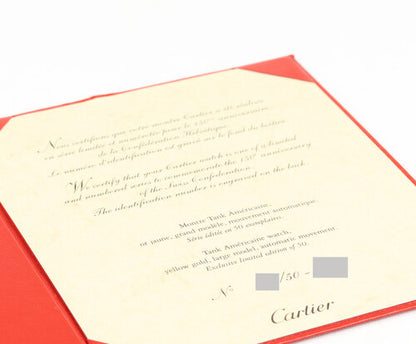 Nous certifions que votre montre Cartier a été réalisée
en série limitée et numérotée pour le 150ème anniversaire
de la Confédération Helvétique.
Le numéro d'identification est gravé sur le fond du boîtier
We certify that your Cartier watch is one of a limited
and numbered series to commemorate the 150th anniversary
of the Swiss Confederation.
The identification number is engraved on the back
Montre Tank Américaine,
or jaune, grand modèle, mouvement automatique.
Série limitée de 50 exemplaires.
Tank Américaine watch,
yellow gold, large model, automatic movement.
Exclusive limited edition of 50.
N /50 -
Cartier